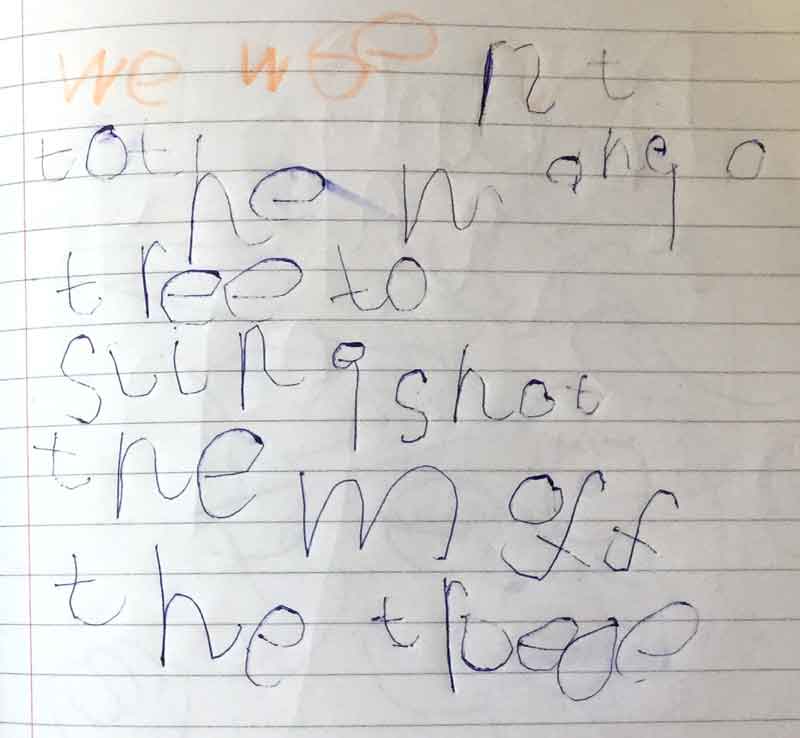 we wee nt
to the mang o
tree to
sling shot
them off
the treee